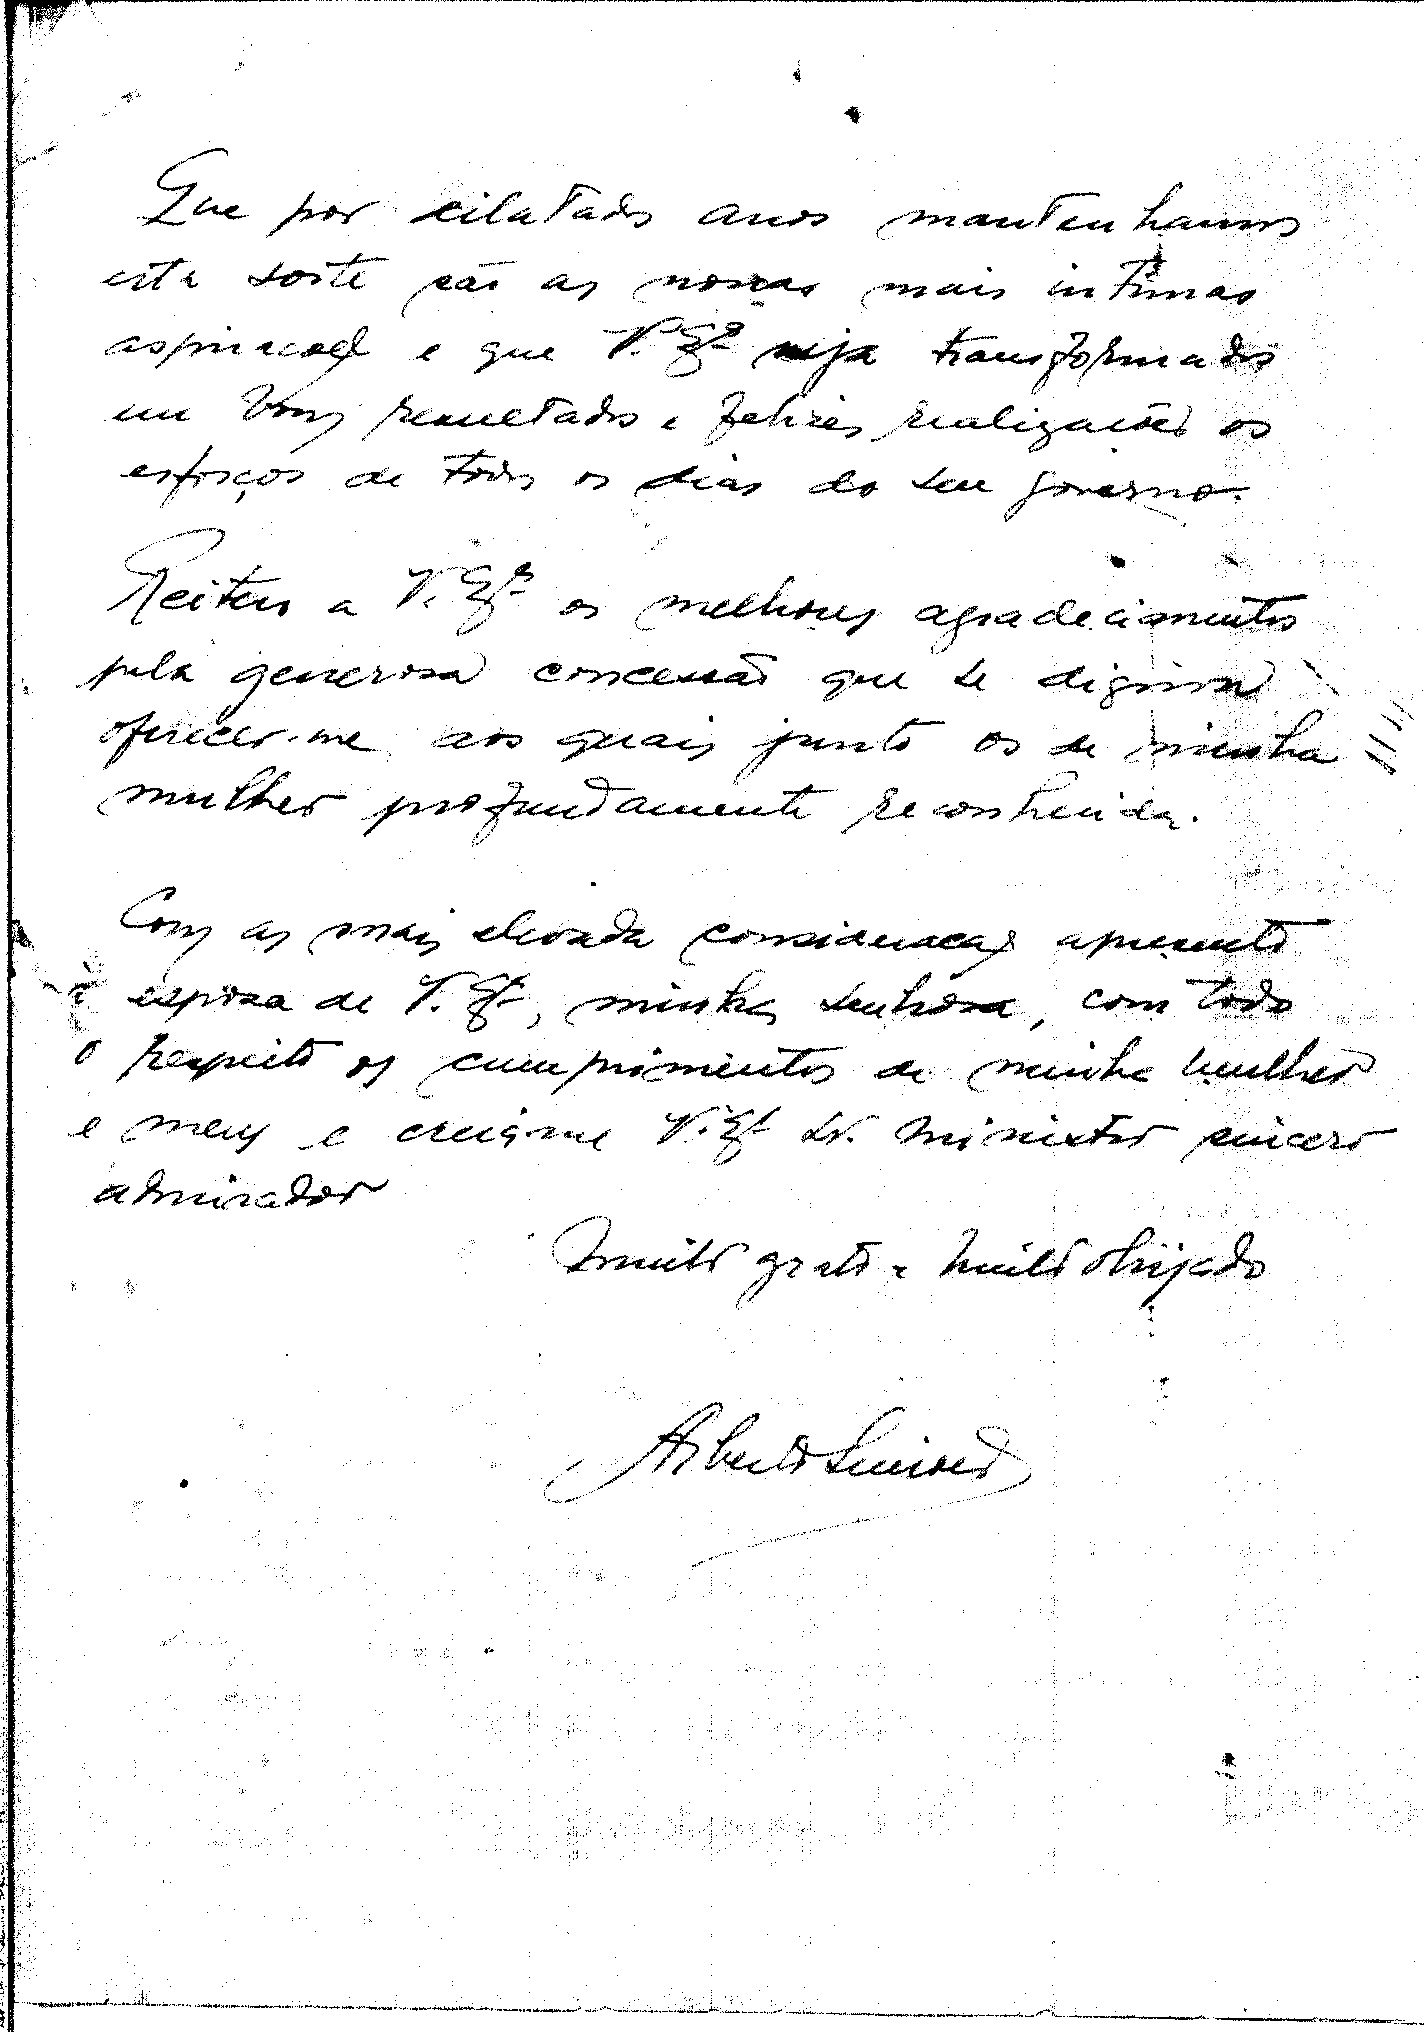 Que por dilatados anos mantenhamos
esta sorte são as nossas mais intimas
aspirações e que V. Exª veja transformados
em bons resultados e felizes realizações os
esforços de todos os dias do seu governo.
Reitero a V. Exª os melhores agradecimentos
pela generosa concessão que se dignou
oferecer-me aos quais junto os de minha
mulher profundamente reconhecida.
Com as mais elevada consideração apresento
à esposa de V. Exª, minha senhora, com todo
o respeito os cumprimentos de minha mulher
e meus e creia-me V. Exª Sr. Ministro sincero
admirador
Muito grato e muito obrigado
Alberto